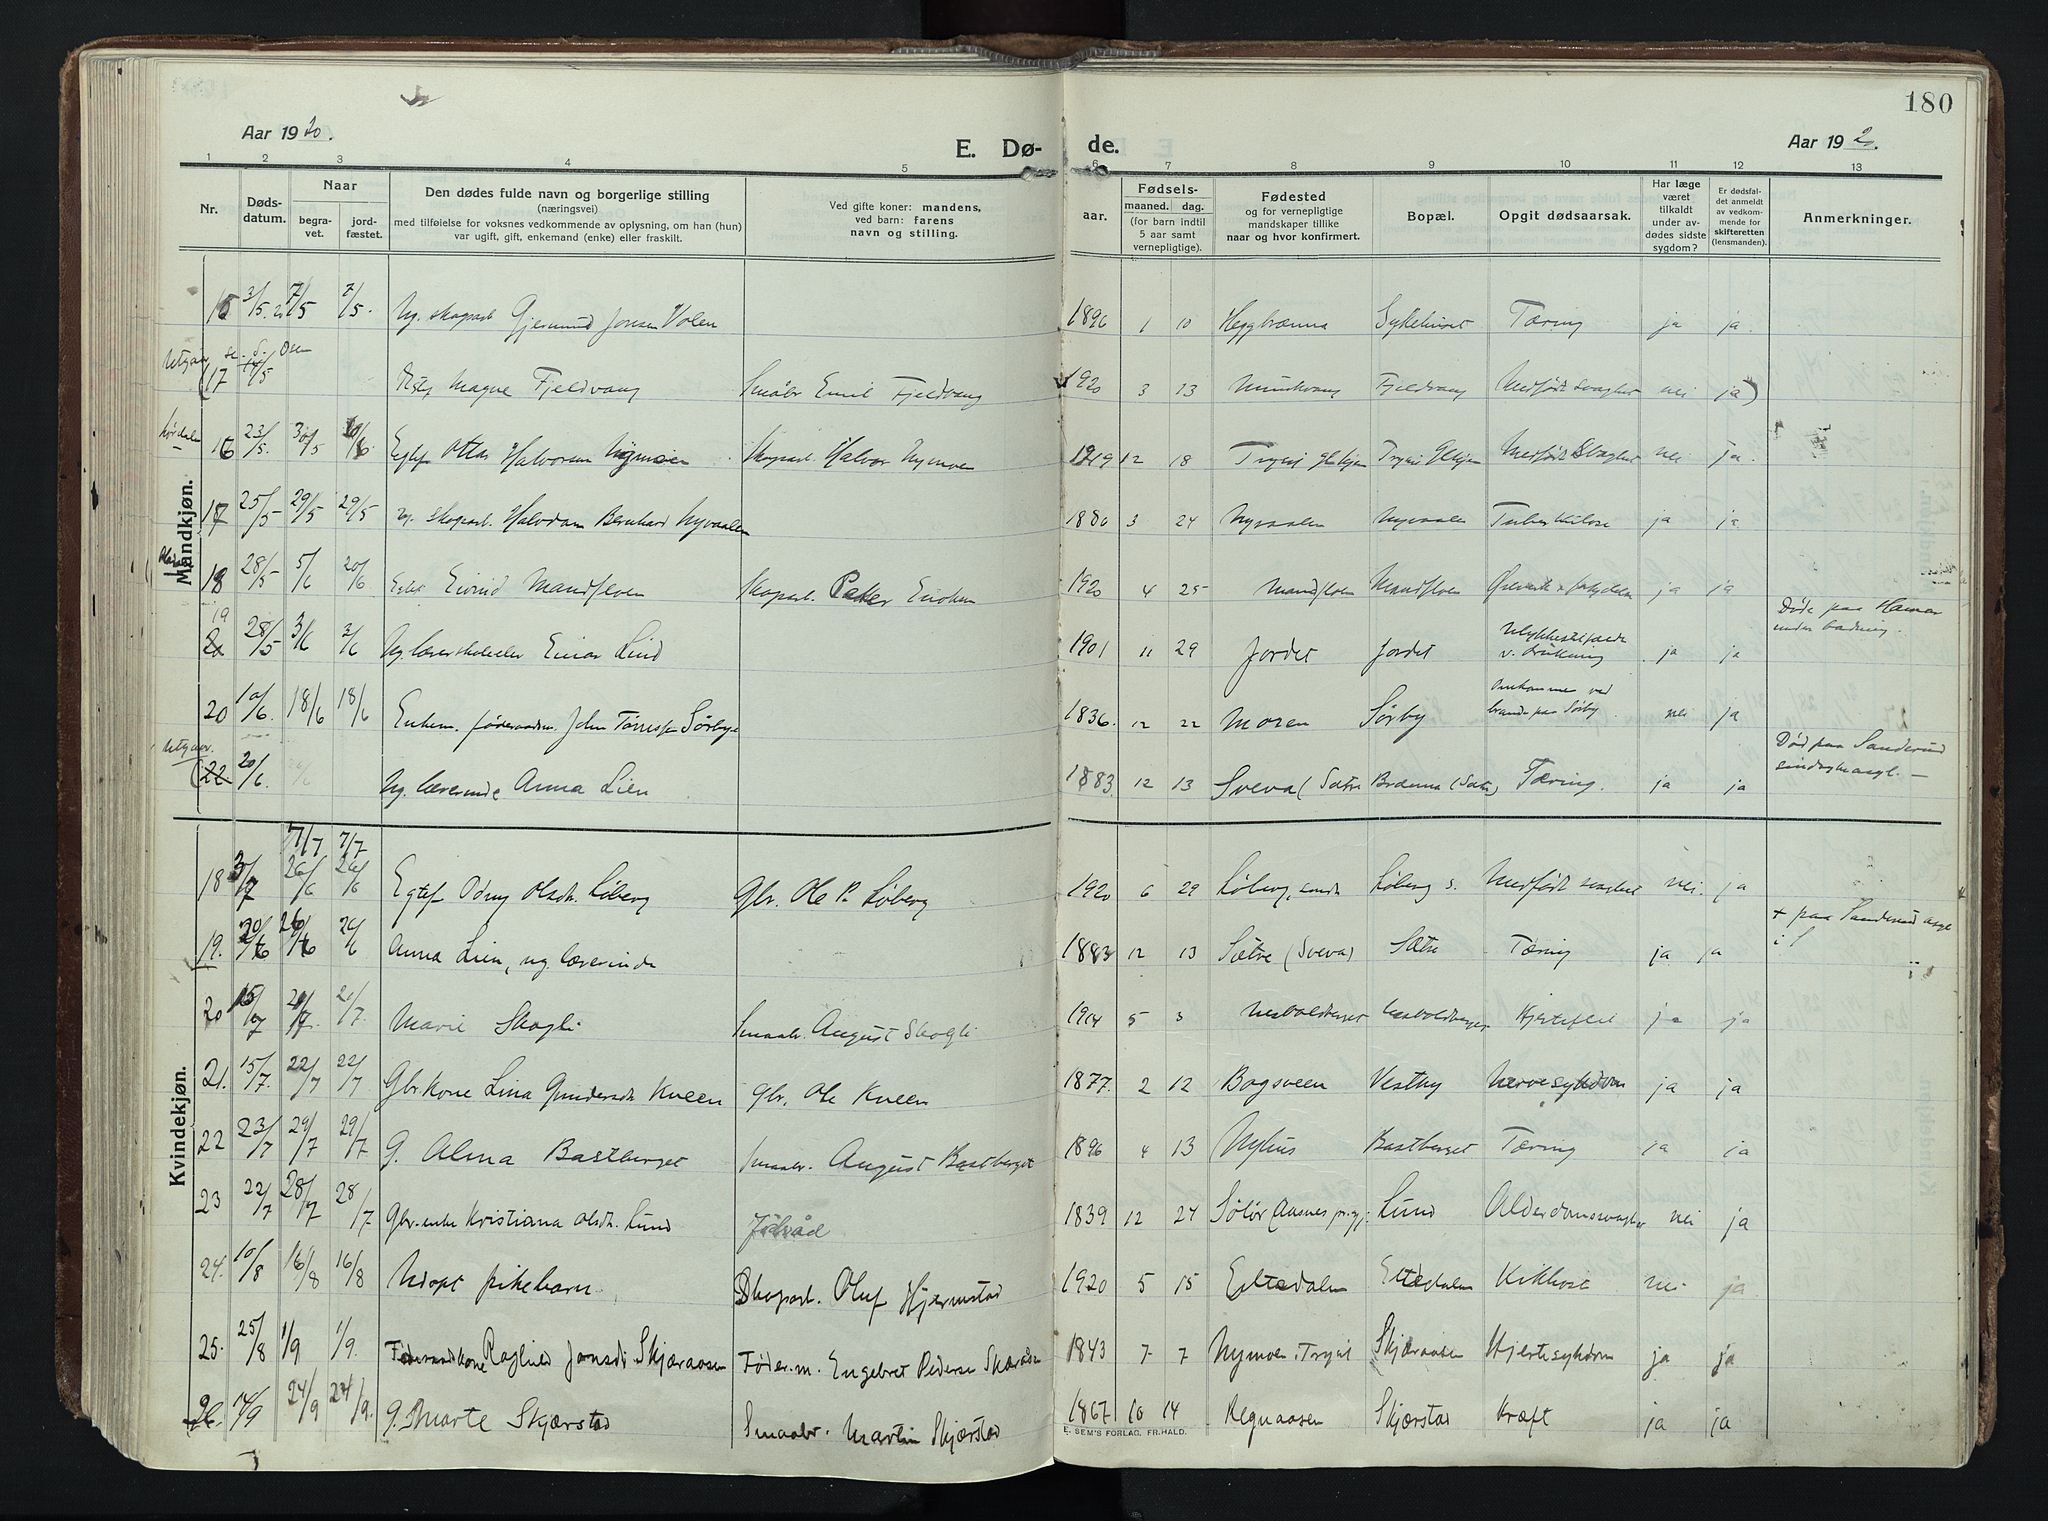 180
Aar 1920.
E. Dø-
de.
Aar 1920.
1 2 3 4 5 6 7 8 9 10 11 12 13
Nr.
Døds-
datum.
Naar
begra-
vet.
jord-
fæstet.
Den dødes fulde navn og borgerlige stilling
(næringsvei)
med tilføielse for voksnes vedkommende av oplysning, om han (hun)
var ugift, gift, enkemand (enke) eller fraskilt.
Ved gifte koner: mandens,
ved barn: farens
navn og stilling.
aar.
Fødsels-
maaned. dag.
(for barn indtil
5 aar samt
vernepligtige).
Fødested
og for vernepligtige
mandskaper tillike
naar og hvor konfirmert.
Bopæl.
Opgit dødsaarsak.
Har læge
været
tilkaldt
under av-
dødes sidste
sygdom?
Er dødsfal-
det anmeldt
av vedkom-
mende for
skifteretten
(lensmanden).
Anmerkninger.
Mandkjøn.
3/5 7/5 7/5. Ug. skogarb. Gjermund Jonsen Volen 1896 1 10 Heggbrænna Sykehuset Tæring ja ja
Utgaar se. S. Osen
17 14/5 Magne Fjeldvang Småbr Emil Fjeldvang 1920 3 13 Munkvang Fjeldvang Medfødt svaghet nei ja)
16 23/5. 30/5 Egtef Halvorsen Nymoen Skogarb. Halvor Nymoen 1919 12 18 Trysil Medfødt Svaghet nei ja.
17 25/5 29/5 29/5 ug. skogarb. Halvdan Bernhard Nyvaalen 1880 3 24 Nyvaalen Nyvaalen Tuberkulose ja ja
18 28/5 5/6 20/6 Egtef Eivind Mandfloen Skogarb. Peder 1920 4 25 Mandfloen Mandfloen ja ja
19 28/5 3/6 3/6 Ug. lærerskoleelev Einar Lind 1901 11 29 Jordet Jordet Ulykkestilfælde v. drukning ja ja Døde paa Hamar under badning.
20 10/6. 18/6 18/6 Enkem. føderaadsm. John Tørresen Sørby 1836. 12 22 Mosen Sørby Omkommet ved brand paa Sørby. nei ja
Utgaar.
(22. 20/6. Ug. lærerinde Anna Lien 1883. 12 13 Sveva (Sætre Brænna (Sætre) Tæring. ja ja Død paa Sanderud sindssykeasyl. –
Kvindekjøn.
7/7 7/7
18 3/7 26/6 26/6 Egtef Odny Olsdt. Løberg Gbr. Ole P. Løberg 1920 6 29 Løberg, søndre Løberg s. Medfødt svaghet nei ja
19. 20/6 26/6 26/6 Anna Lien, ug. lærerinde 1883 12 13 Sætre (Sveva) Sætre Tæring ja ja + paa Sanderud asyl
20 15/7 21/7. 21/7. Marie Skogli Smaabr. August Skogli 1914 5 3 Nesvoldberget Nesvoldberget Hjertefeil ja ja
21. 15/7. 22/7 22/7 Gbr.kone Lina Gundersdt. Kveen Gbr. Ole Kveen 1877. 2 12 Bogsveen Vestby Nervesykdom ja ja
22 23/7 29/7 29/7 G. Alma Bastberget Smaabr. August Bastberget 1896 4 13 Nyhus Bastberget Tæring ja ja
23 22/7 28/7 28/7 Gbr.enke Kristiana Olsdt. Lund 1839 12 24 Sølør (Aasnes prgj. Lund Alderdomssvaghet nei ja
24. 10/8 16/8 16/8 Udøpt pikebarn. Skogarb. Oluf Hjermstad 1920 5 15 Eltedalen Eltedalen Kikhoste nei ja
25. 25/8 1/9 1/9. Føderaadskone Ragnild Jonsdt. Skjæraasen Føder.m. Engebret Pedersen Skæråsen 1843 7 7 Nymoen i Trysil Skjæraasen Hjertesykdom ja ja
26. 14/9 24/9 24/9. G. Marte Skjærstad Smaabr. Martin Skjærstad 1867 10 14 Regnaasen Skjærstad Kræft ja ja
E. SEM'S FORLAG, FR.HALD.